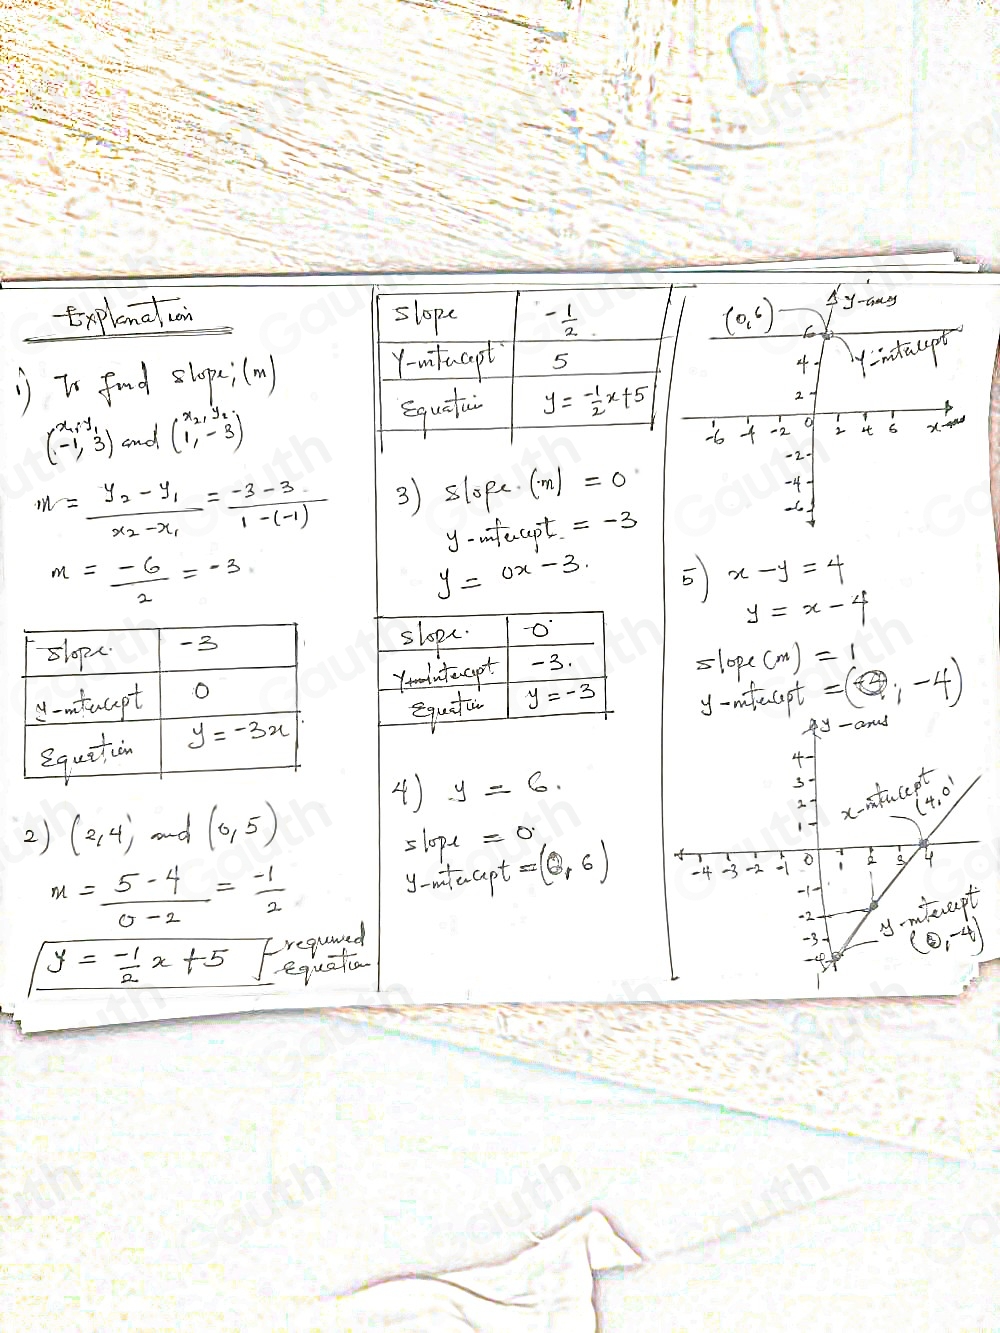 Explanation
1) To find slope; (m)
x₁, y₁ x₂, y₂
(-1, 3) and (1, -3)
m = y₂ - y₁ / x₂ - x₁ = -3 - 3 / 1 - (-1)
m = -6 / 2 = -3.
slope. -3
y-intercept 0
Equation y = -3x
2) (2, 4) and (0, 5)
m = 5 - 4 / 0 - 2 = -1 / 2
y = -1/2 x + 5 required
Equation
slope -1/2
Y-intercept 5
Equation y = -1/2 x + 5
3) slope. (m) = 0
y-intercept = -3
y = 0x - 3.
slope. 0
Y-intercept -3.
Equation y = -3
4) y = 6.
slope = 0
y-intercept = (0, 6)
(0, 6) y-axis
6
y-intercept
4
2
-6 -4 -2 0 2 4 6 x-axis
-2
-4
-6
5) x - y = 4
y = x - 4
slope (m) = 1
y-intercept = ( , -4)
y-axis
4
3
2
1
x-intercept
(4, 0)
-4 -3 -2 -1 0 1 2 3 4
-1
-2
-3
-4
y-intercept
(0, -4)